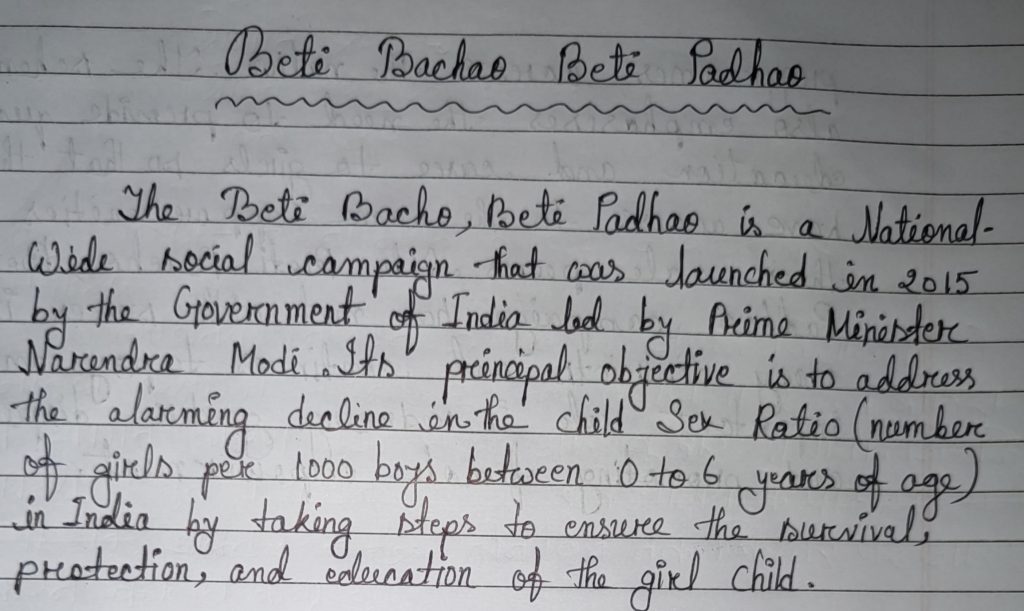 Beti Bachao Beti Padhao
The Beti Bacho, Beti Padhao is a National-
Wide social campaign that was launched in 2015
by the Government of India led by Prime Minister
Narendra Modi. Its principal objective is to address
the alarming decline in the child Sex Ratio (number
of girls per 1000 boys between 0 to 6 years of age)
in India by taking steps to ensure the survival,
protection, and education of the girl child.